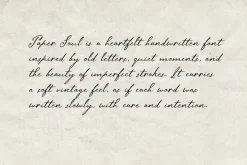 Paper Soul is a heartfelt handwritten font
inspired by old letters, quiet moments, and
the beauty of imperfect strokes. It carries
a soft vintage feel, as if each word was
written slowly, with care and intention.